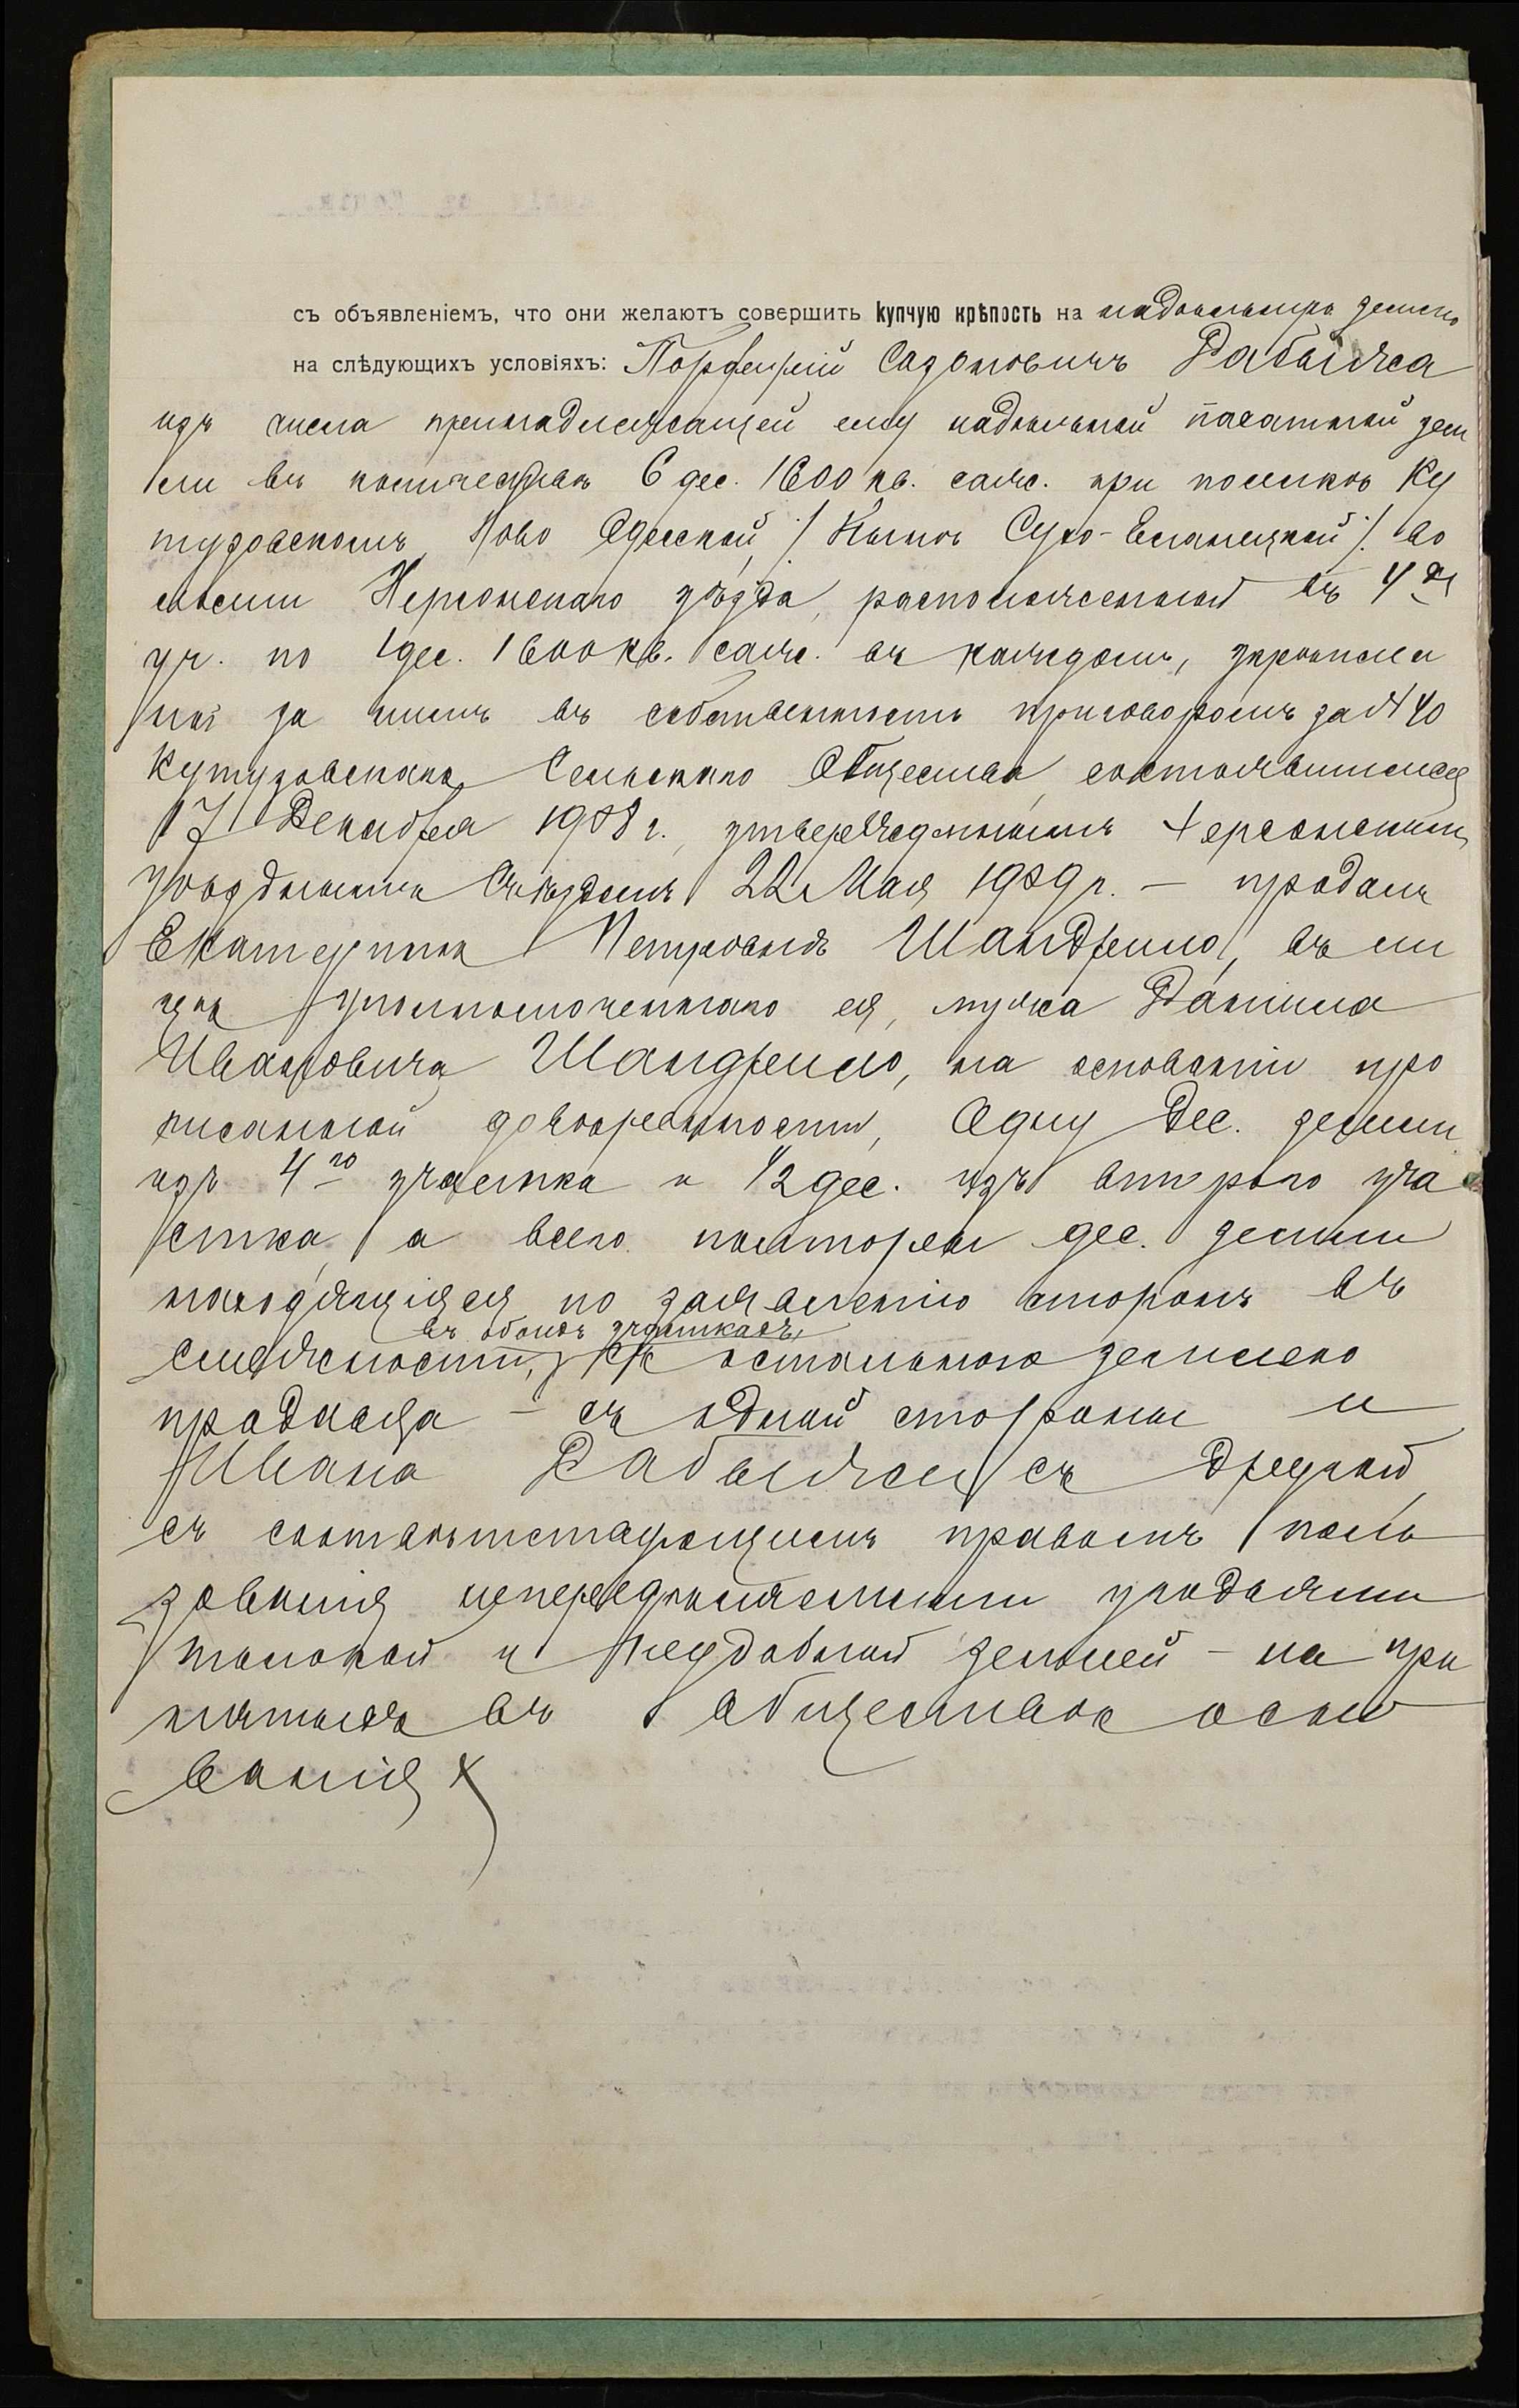 съ объявленіемъ, что они желаютъ совершить купчую крѣпость на надѣльную землю
на слѣдующихъ условіяхъ: Порфирій Сазоновичъ Дабыжа
изъ числа принадлежащей ему надѣльной пахатной зем
ли въ количествѣ 6 дес. 1600 кв. саж. при поселкѣ Ку
тузовскомъ, Ново Одесской, /Нынѣ Сухо-Еланецкой/. во
лости Херсонскаго уѣзда, расположенной въ 4хъ
уч. по 1 дес. 1600 кв. саж. въ каждомъ, укрѣплен
ной за нимъ въ собственность приговоромъ за № 40
Кутузовскаго Сельскаго Общества, состоявшимся
17 Декабря 1908 г., утвержденнымъ Херсонскимъ
уѣзднымъ Съѣздомъ 22 Мая 1909 г. — продалъ
Екатеринѣ Петровнѣ Шандренко, въ ли
цѣ уполномоченнаго ея, мужа Даніила
Ивановича Шандренко, на основаніи про
писанной довѣренности, Одну Дес. земли
изъ 4го участка и 1/2 дес. изъ второго уча
стка, а всего полторы дес. земли
находящіяся по заявленію сторонъ въ
въ обоихъ участкахъ
смежности, съ остальною землею
продавца — съ одной стороны и
Ивана Дабыжи съ другой
съ соотвѣтствующимъ правомъ поль
зованія непередѣляемыми угодьями
толокой и неудобной землей — на при
нятыхъ въ обществѣ осно
ваніях